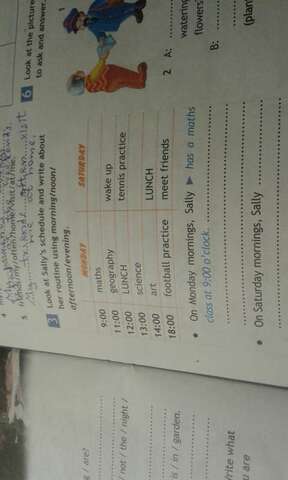 6 Look at the picture
to ask and answer.
1
2 A:
watering
(flowers
B:
(plan
5 Look at Sally's schedule and write about
her routine using morning/noon/
afternoon/evening.
MONDAY SATURDAY
9:00 maths wake up
11:00 geography tennis practice
12:00 LUNCH
13:00 science LUNCH
14:00 art
18:00 football practice meet friends
• On Monday mornings, Sally ▶ has a maths
class at 9:00 o'clock.
• On Saturday mornings, Sally
/ are?
/ not / the / night /
is / in / garden.
Write what
u are